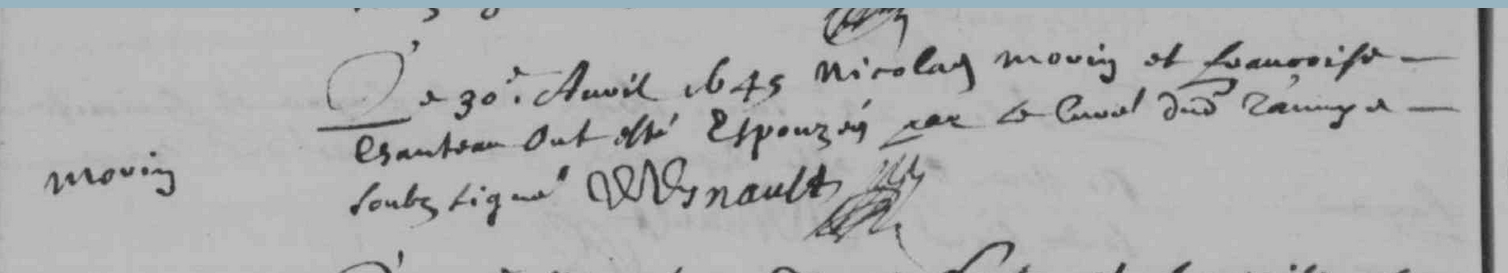 Le 30e Avril 1645 Nicolas Morin et francoise
Chanteau ont esté Espouzés par le Curé dud
Morin
soubz signé